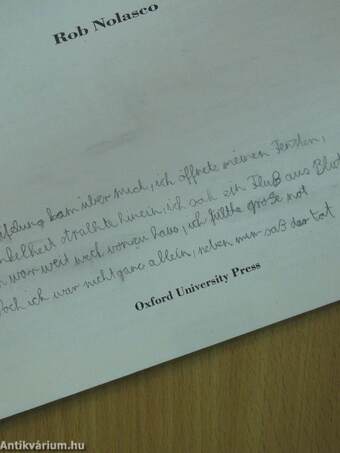 Rob Nolasco
kam über mich, ich öffnete meinen Fensten,
strahlte hinein, ich sah ein Fluß aus Blut
war weit weck von zu haus, ich fühlte große not
Doch ich war nicht ganc allein, neben mir saß der tot
Oxford University Press
Antikvárium.hu